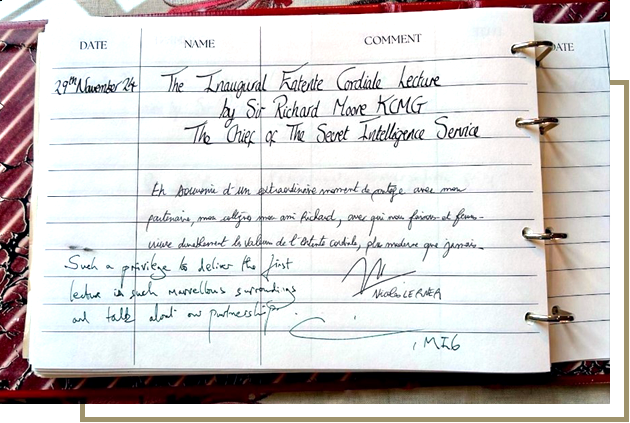 DATE NAME COMMENT
29th November 24 The Inaugural Entente Cordiale Lecture
by Sir Richard Moore KCMG
The Chief of The Secret Intelligence Service
En souvenir d'un extraordinaire moment de partage avec mon
partenaire, mon collègue mon ami Richard, avec qui nous faisons et ferons
vivre durablement les valeurs de l'Entente cordiale, plus moderne que jamais.
Such a privilege to deliver the first
lecture in such marvellous surroundings
and talk about our partnership.
NICOLAS LERNER
, MI6
DATE